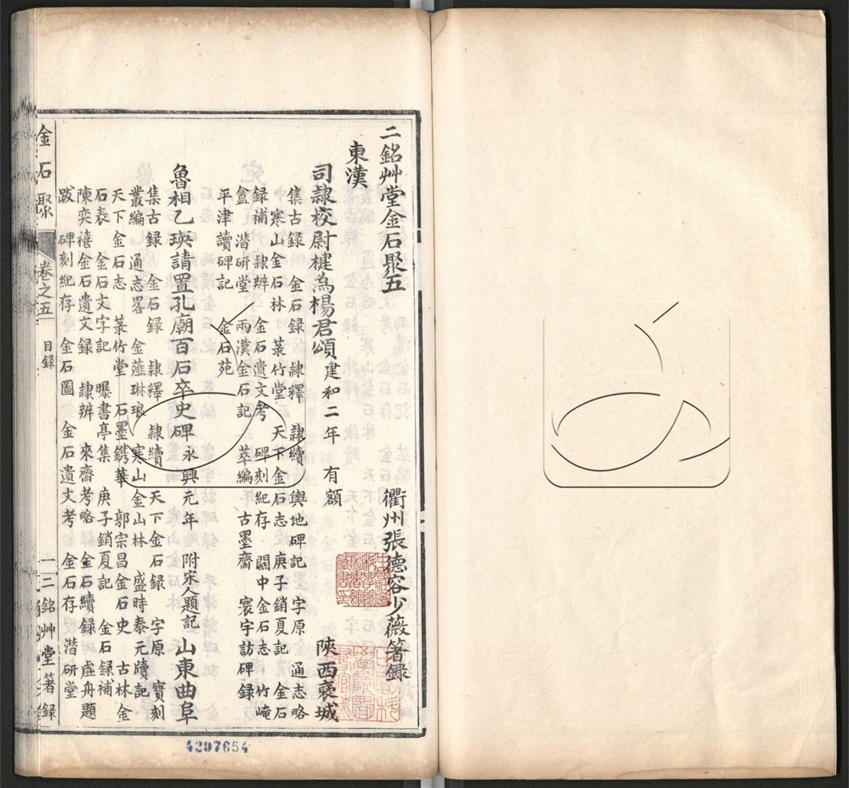 二銘艸堂金石聚五
衢州張德容少薇箸録
東漢
司隷校尉楗為楊君頌 建和二年 有額 陝西襃城
集古録 金石録 隷釋 隷續 輿地碑記 字原 通志略
寒山金石林 菉竹堂 天下金石志 庚子銷夏記 金石
録補 隷辦 金石遺文考 碑刻紀存 關中金石志 竹崦
盦 潛研堂 兩漢金石記 萃編 古墨齋 寰宇訪碑録
平津讀碑記 金石苑
魯相乙瑛請置孔廟百石卒史碑 永興元年 附宋人題記 山東曲阜
集古録 金石録 隷釋 隷續 天下金石録 字原 寶刻
叢編 通志畧 金薤琳琅 寒山金山林 盛時泰元牘記
天下金石志 菉竹堂 石墨鐫華 郭宗昌金石史 古林金
石表 金石文字記 曝書亭集 庚子銷夏記 金石録補
陳奕禧金石遺文録 隷辨 來齋考略 金石續録 虛舟題
跋 碑刻紀存 金石圖 金石遺文考 金石存 潛研堂
金石聚 卷之五 目録 一 二銘艸堂箸録
4297654